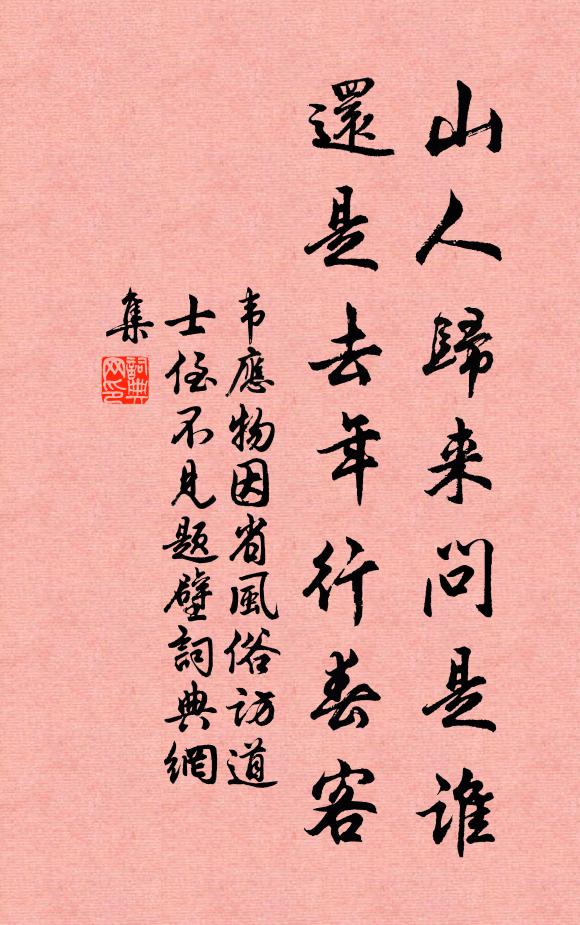 山人歸来問是誰
還是去年行春客
韦應物因省風俗訪道
士侄不見題壁詞典網
集
詞典
网印